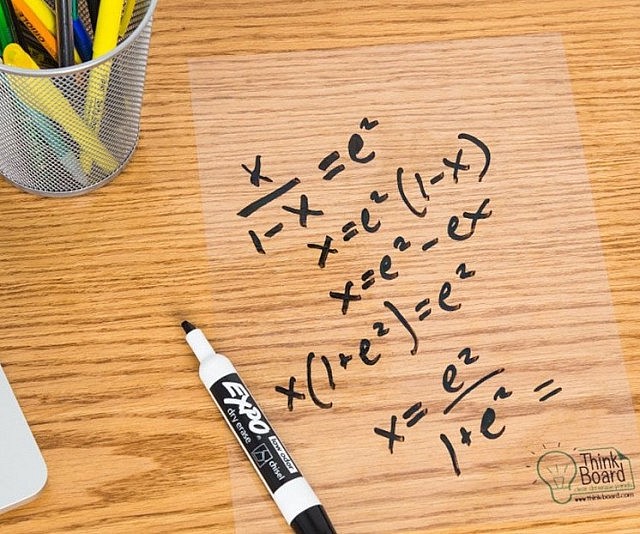 x/1-x = e²
x = e²(1-x)
x = e² - ex
x(1+e²) = e²
x = e²/1+e² =
EXPO
dry erase
low odor
chisel
Think
Board
www.thinkboard.com